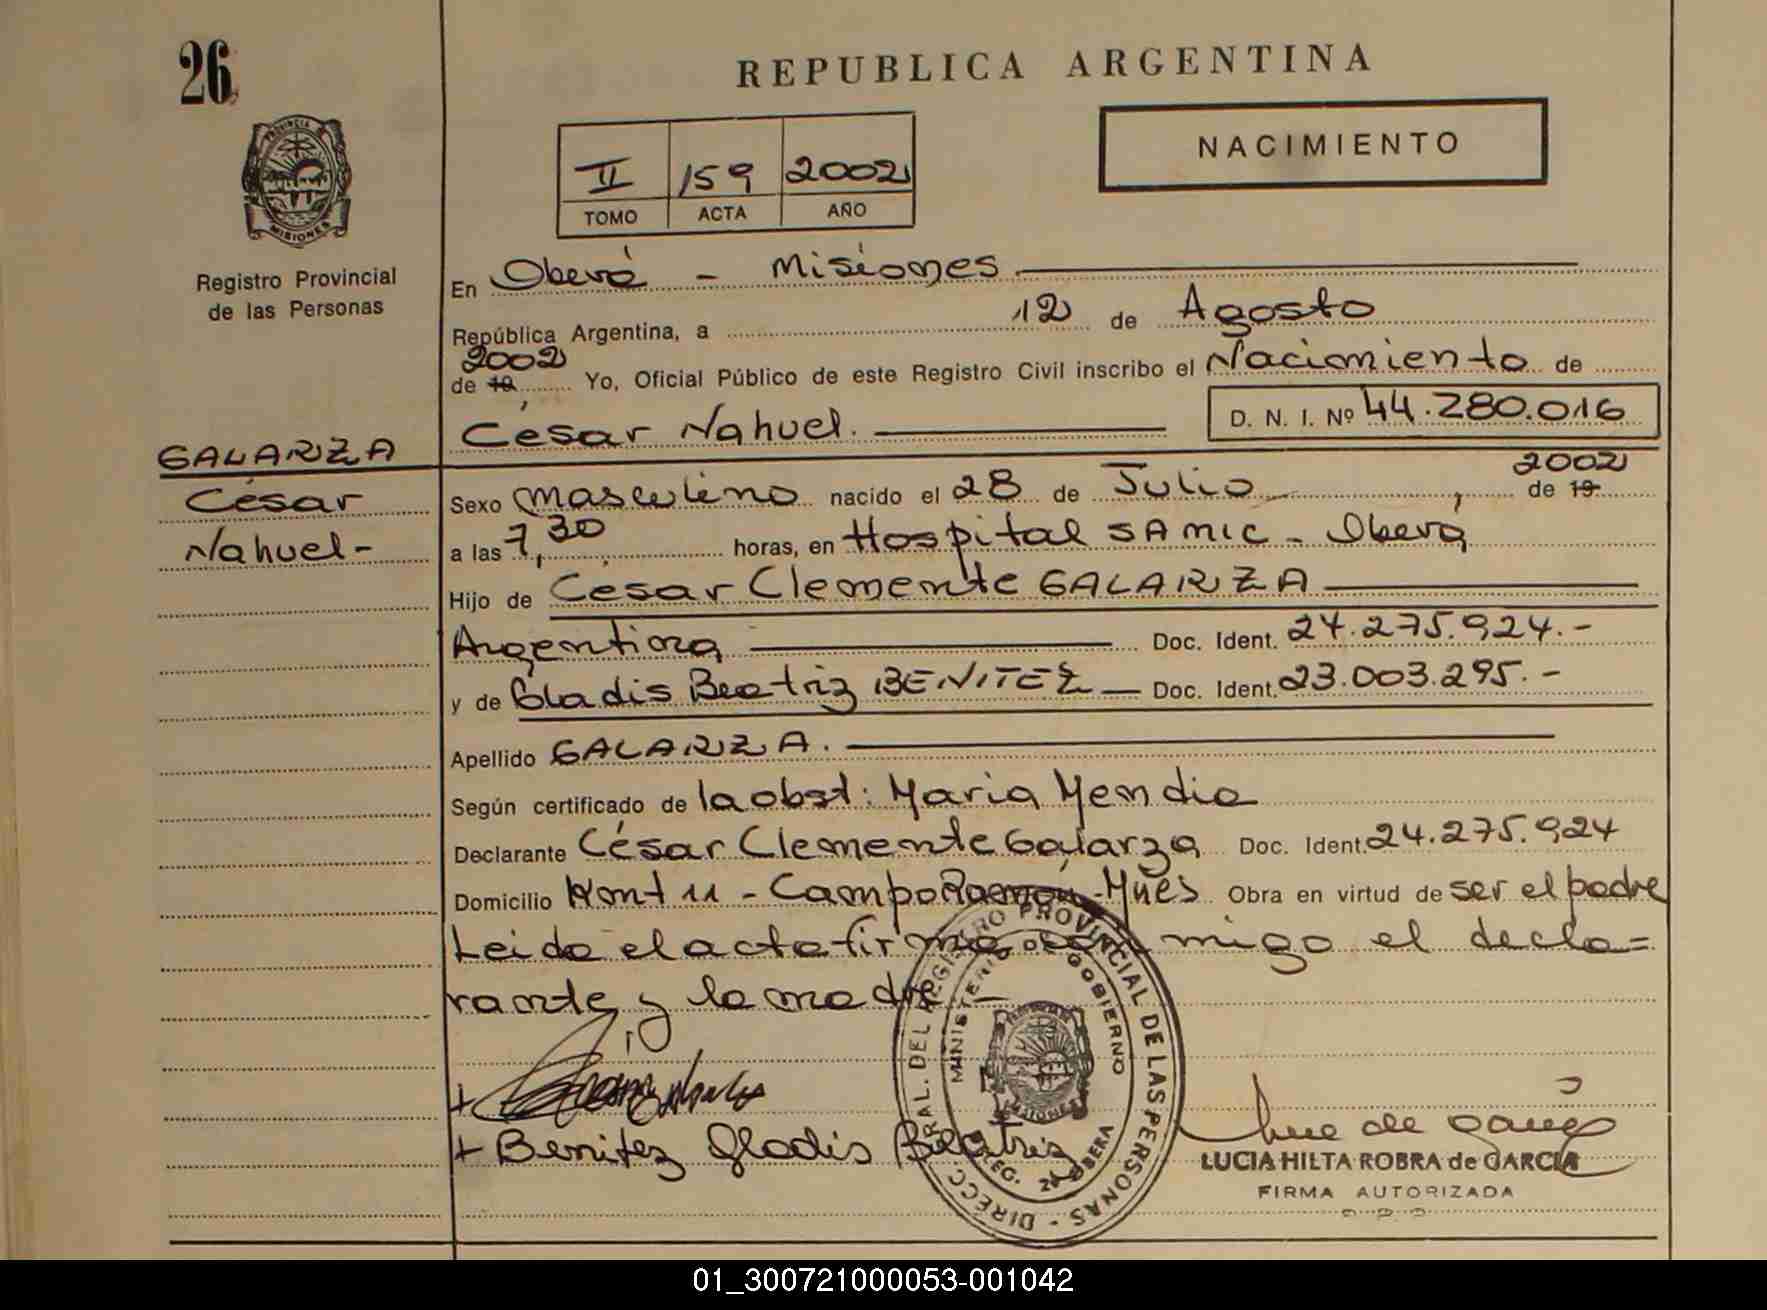 26
REPUBLICA ARGENTINA
NACIMIENTO
II 159 2002
TOMO ACTA AÑO
PROVINCIA DE
MISIONES
Registro Provincial
de las Personas
En Oberá - Misiones
República Argentina, a 12 de Agosto
2002
de 19 Yo, Oficial Público de este Registro Civil inscribo el Nacimiento de
César Nahuel. D. N. I. Nº 44.280.016
GALARZA
César
Nahuel-
2002
Sexo masculino nacido el 28 de Julio, de 19
a las 7,30 horas, en Hospital SAMIC - Oberá
Hijo de César Clemente GALARZA
Argentina Doc. Ident. 24.275.924.-
y de Gladis Beatriz BENITEZ Doc. Ident. 23.003.295.-
Apellido GALARZA.
Según certificado de la obst: Maria Mendia
Declarante César Clemente Galarza Doc. Ident. 24.275.924
Domicilio Km 11 - Campo Ramón - Mnes Obra en virtud de ser el padre
Leido el acta firma conmigo el decla=
rante y la madre -
+ Benitez Gladis Beatriz
DIRECC. GRAL. DEL REGISTRO PROVINCIAL DE LAS PERSONAS -
MINISTERIO DE GOBIERNO
MISIONES
OBERA
LUCIA HILTA ROBRA de GARCIA
FIRMA AUTORIZADA
01_300721000053-001042